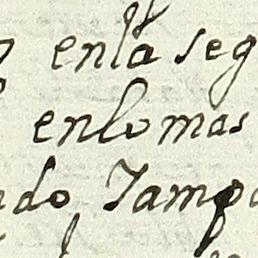 enla seg
enlo mas
ndo Jamp